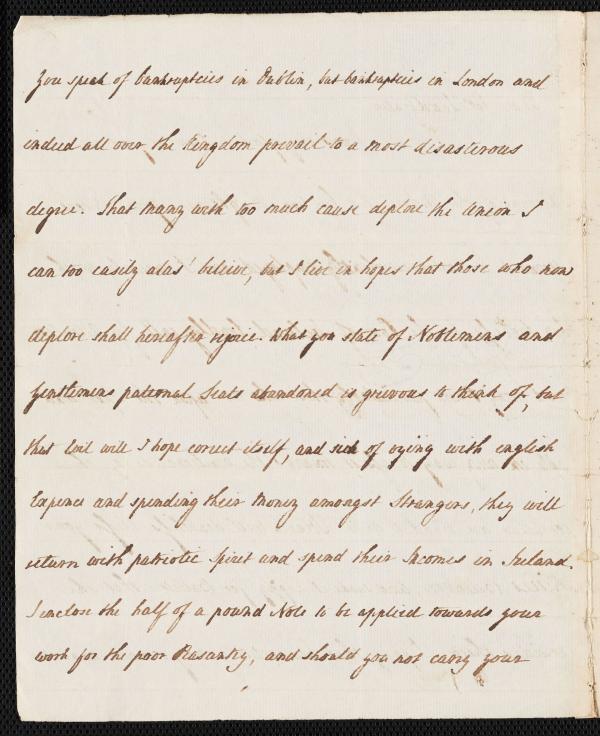 You speak of bankruptcies in Dublin, but bankruptcies in London and
indeed all over the Kingdom prevail to a most disasterous
degree. That many with too much cause deplore the Union I
can too easily alas! believe, but I live in hopes that those who now
deplore shall hereafter rejoice. What you state of Noblemens and
Gentlemens paternal Seats abandoned is grievous to think of, but
that Evil will I hope correct itself, and sick of vying with english
Expence and spending their Money amongst Strangers, they will
return with patriotic Spirit and spend their Incomes in Ireland.
I enclose the half of a pound Note to be applied towards your
work for the poor Peasantry, and should you not carry your